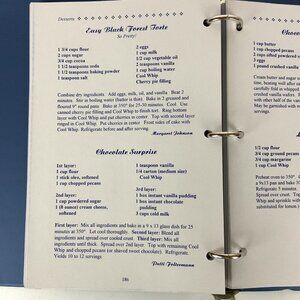 Desserts
Easy Black Forest Torte
So Pretty!
1 3/4 cups flour
2 cups sugar
3/4 cup cocoa
1 1/2 teaspoons soda
1 1/2 teaspoons baking powder
1 teaspoon salt
2 eggs
1 cup milk
1/2 cup vegetable oil
1 teaspoon vanilla
1 cup boiling water
Cool Whip
Cherry pie filling
Combine dry ingredients. Add eggs, milk, oil, and vanilla. Beat 2
minutes. Stir in boiling water (batter is thin). Bake in 2 greased and
floured 9" round pans. Bake at 350° for 25-30 minutes. Cool. Use
canned cherry pie filling and Cool Whip between layers. Ring bottom
layer with Cool Whip and put cherries in center. Top with second layer
ringed in Cool Whip. Put cherries in center. Frost sides of cake with
Cool Whip. Refrigerate before and after serving.
Margaret Johnson
Chocolate Surprise
1st layer:
1 cup flour
1 stick oleo, softened
1 cup chopped pecans
2nd layer:
1 cup powdered sugar
1 (8 ounce) cream cheese,
softened
1 teaspoon vanilla
1/4 carton (medium size)
Cool Whip
3rd layer:
1 box instant vanilla pudding
1 box instant chocolate
pudding
3 cups cold milk
First layer: Mix all ingredients and bake in a 9 x 13 glass dish for 25
minutes at 350°. Let cool thoroughly. Second layer: Blend all
ingredients and spread over cooled crust. Third layer: Mix all
ingredients until thick. Spread over 2nd layer. Top with remaining Cool
Whip and chopped pecans (or shaved sweet chocolate). Refrigerate.
Yields 10 to 12 servings
Patti Folterman
186
Choc
1 cup butter
1 cup chopped
2 eggs
1 pound crushed vanilla
Cream butter and sugar
1/2 cup flour
3/4 cup ground pecans
3/4 cup margarine
1 cup Cool